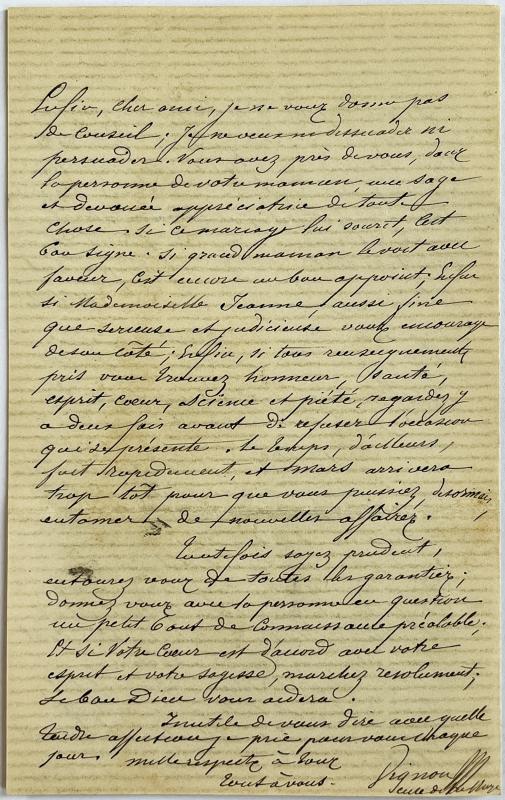 Enfin, cher ami, je ne vous donne pas
de conseil; Je ne veux ni dissuader ni
persuader. Vous avez près de vous, dans
la personne de votre maman, une sage
et dévouée appréciatrice de toute
chose. Si ce mariage lui sourit, C'est
bon signe. Si grand maman le voit avec
faveur, C'est encore un bon appoint; Enfin
si Mademoiselle Jeanne, aussi fine
que sérieuse et judicieuse vous encourage
de son côté; Enfin, si tous renseignements
pris vous trouvez honneur, santé,
esprit, cœur, science et piété, regardez y
à deux fois avant de refuser l'occasion
qui se présente. Le temps, d'ailleurs,
fuit rapidement, et Mars arrivera
trop tôt pour que vous puissiez, désormais,
entamer de nouvelles affaires.
Toutefois soyez prudent,
entourez vous de toutes les garanties;
donnez vous avec la personne en question
un petit bout de connaissance préalable.
Et si Votre Cœur est d'accord avec votre
esprit et votre sagesse, marchez résolument;
Le bon Dieu vous aidera.
Inutile de vous dire avec quelle
tendre affection je prie pour vous chaque
jour. Mille respects à tous
Tout à vous.
Vignon